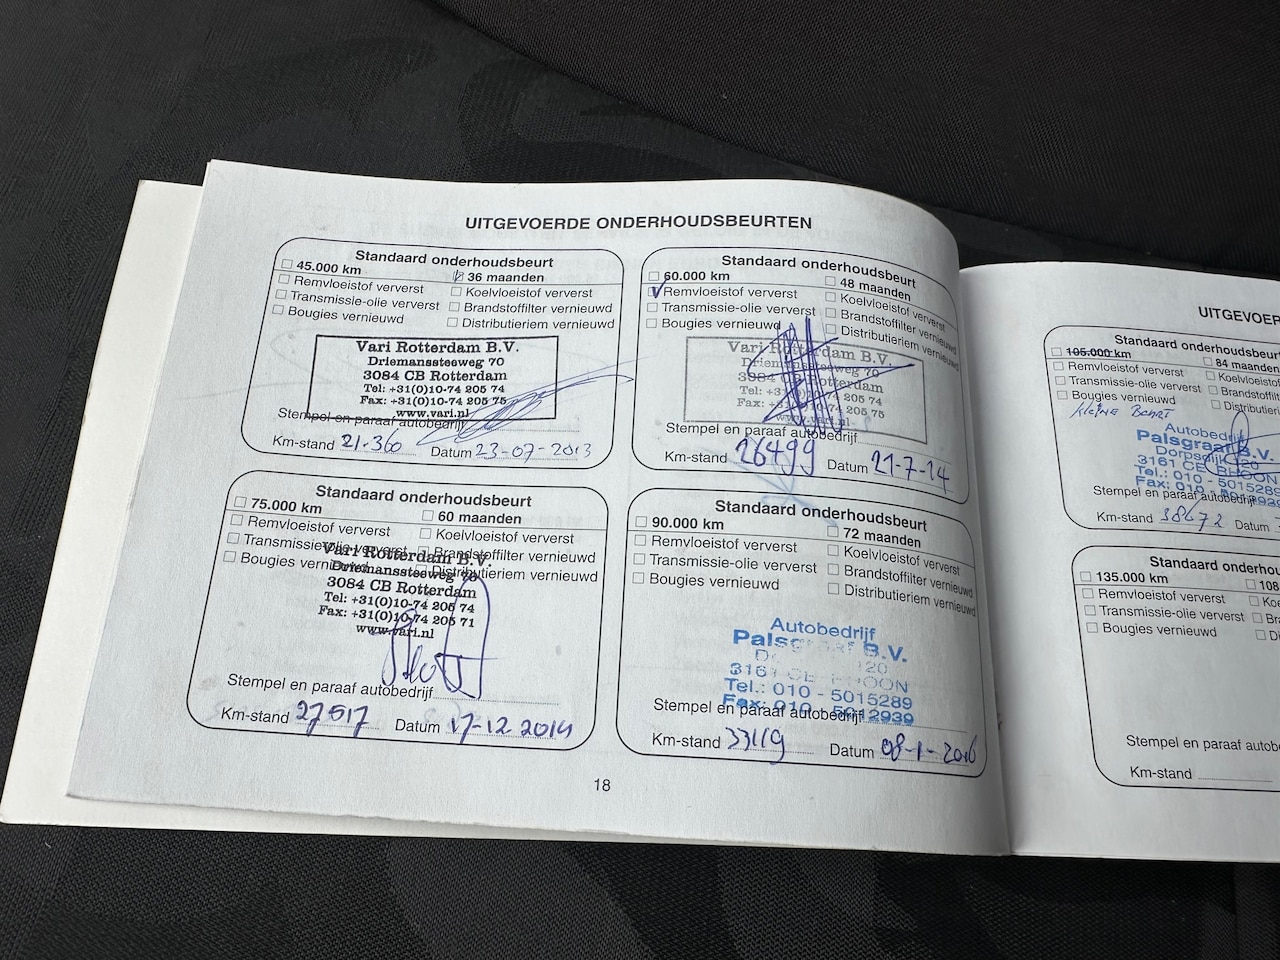 UITGEVOERDE ONDERHOUDSBEURTEN
Standaard onderhoudsbeurt
45.000 km 36 maanden
Remvloeistof ververst Koelvloeistof ververst
Transmissie-olie ververst Brandstoffilter vernieuwd
Bougies vernieuwd Distributieriem vernieuwd
Vari Rotterdam B.V.
Driemanssteeweg 70
3084 CB Rotterdam
Tel: +31(0)10-74 205 74
Fax: +31(0)10-74 205 75
www.vari.nl
Stempel en paraaf autobedrijf
Km-stand 21.360 Datum 23-07-2013
Standaard onderhoudsbeurt
60.000 km 48 maanden
Remvloeistof ververst Koelvloeistof ververst
Transmissie-olie ververst Brandstoffilter vernieuwd
Bougies vernieuwd Distributieriem vernieuwd
Vari Rotterdam B.V.
Driemanssteeweg 70
3084 CB Rotterdam
Tel: +31(0)10-74 205 74
Fax: +31(0)10-74 205 75
www.vari.nl
Stempel en paraaf autobedrijf
Km-stand 26499 Datum 21-7-14
Standaard onderhoudsbeurt
75.000 km 60 maanden
Remvloeistof ververst Koelvloeistof ververst
Transmissie-olie ververst Brandstoffilter vernieuwd
Bougies vernieuwd Distributieriem vernieuwd
Vari Rotterdam B.V.
Driemanssteeweg 70
3084 CB Rotterdam
Tel: +31(0)10-74 205 74
Fax: +31(0)10-74 205 71
www.vari.nl
Stempel en paraaf autobedrijf
Km-stand 27517 Datum 17-12-2014
Standaard onderhoudsbeurt
90.000 km 72 maanden
Remvloeistof ververst Koelvloeistof ververst
Transmissie-olie ververst Brandstoffilter vernieuwd
Bougies vernieuwd Distributieriem vernieuwd
Autobedrijf
Palsgraaf B.V.
120
3161 CE RHOON
Tel.: 010 - 5015289
Fax: 010 - 5012939
Stempel en paraaf autobedrijf
Km-stand 33119 Datum 08-1-2016
18
UITGEVOER
Standaard onderhoudsbeurt
105.000 km 84 maanden
Remvloeistof ververst Koelvloeistof
Transmissie-olie ververst Brandstoffilt
Bougies vernieuwd Distributieri
kleine Beurt
Autobedrijf
Palsgraaf B.V.
Dorpsdijk 120
3161 CE RHOON
Tel.: 010 - 5015289
Fax: 010 - 5012939
Stempel en paraaf autobedrijf
Km-stand 38672 Datum
Standaard onderhou
135.000 km 108
Remvloeistof ververst Koe
Transmissie-olie ververst Bra
Bougies vernieuwd Di
Stempel en paraaf autobe
Km-stand